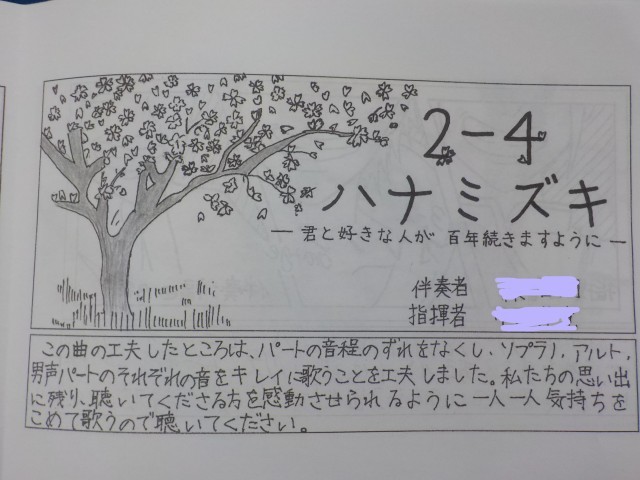 2-4
ハナミズキ
― 君と好きな人が 百年続きますように ―
伴奏者
指揮者
この曲の工夫したところは、パートの音程のずれをなくし、ソプラノ、アルト、
男声パートのそれぞれの音をキレイに歌うことを工夫しました。私たちの思い出
に残り、聴いてくださる方を感動させられるように一人一人気持ちを
こめて歌うので聴いてください。